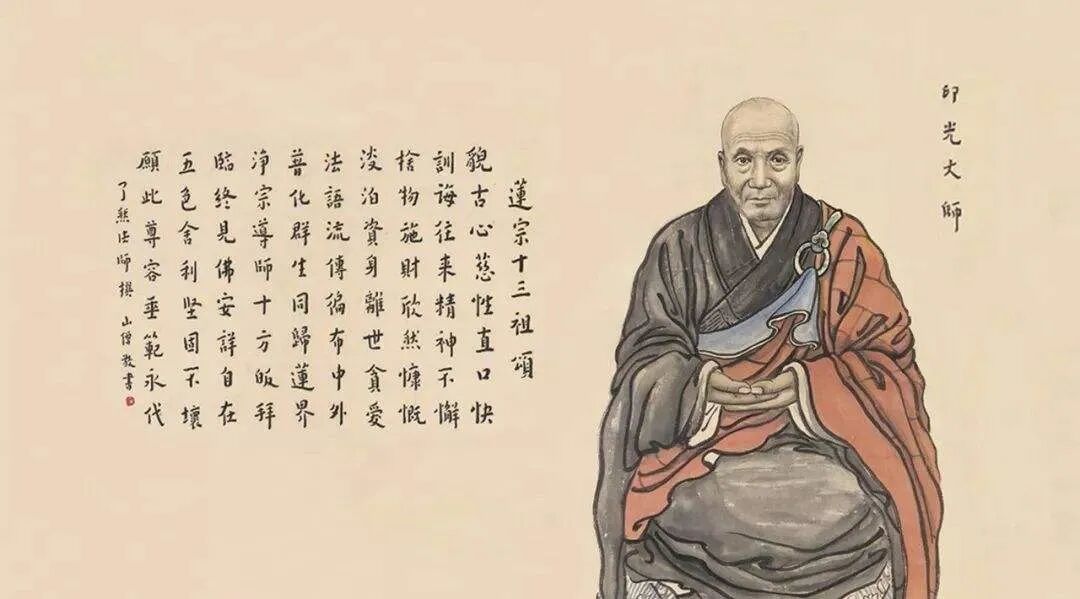 印光大師
蓮宗十三祖頌
貌古心慈性直口快
訓誨往來精神不懈
捨物施財欣然慷慨
淡泊資身離世貪愛
法語流傳徧布中外
普化群生同歸蓮界
净宗導師十方皈拜
臨終見佛安詳自在
五色舍利坚固不壞
願此尊容垂範永代
了然法師撰 山僧書